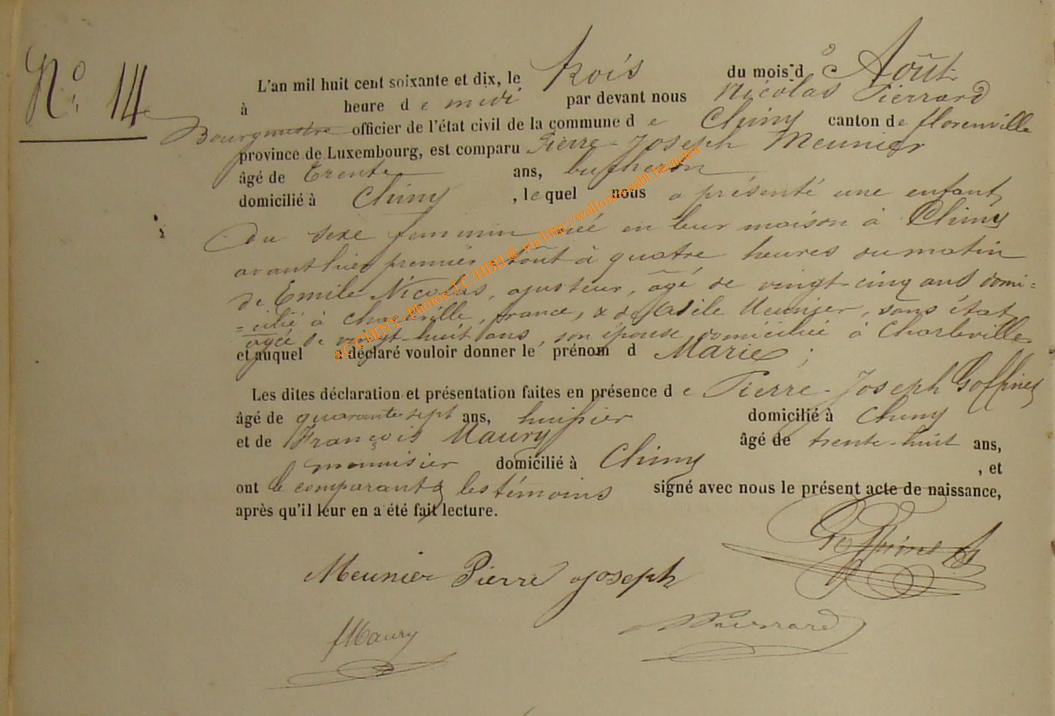 N° 14
L'an mil huit cent soixante et dix, le trois du mois d'Août
à heure de midi par devant nous Nicolas Pierrard
Bourgmestre officier de l'état civil de la commune de Chiny canton de florenville
province de Luxembourg, est comparu Pierre-Joseph Meunier
âgé de trente ans, bucheron
domicilié à Chiny, lequel nous a présenté une enfant
du sexe feminin née en leur maison à Chiny
avant hier premier août à quatre heures du matin
de Emile Nicolas, ajusteur, âgé de vingt-cinq ans domi-
-cilié à Charleville, france, & de Adèle Meunier, sans état
agée de vingt-huit ans, son épouse domiciliée à Charleville
et auquel a déclaré vouloir donner le prénom d Marie;
Les dites déclaration et présentation faites en présence de Pierre-Joseph Goffinet
âgé de quarante sept ans, huissier domicilié à Chiny
et de François Maury âgé de trente-huit ans,
menuisier domicilié à Chiny, et
ont le comparant & les témoins signé avec nous le présent acte de naissance,
après qu'il leur en a été fait lecture.
Goffinet
Meunier Pierre joseph
Maury
Pierrard